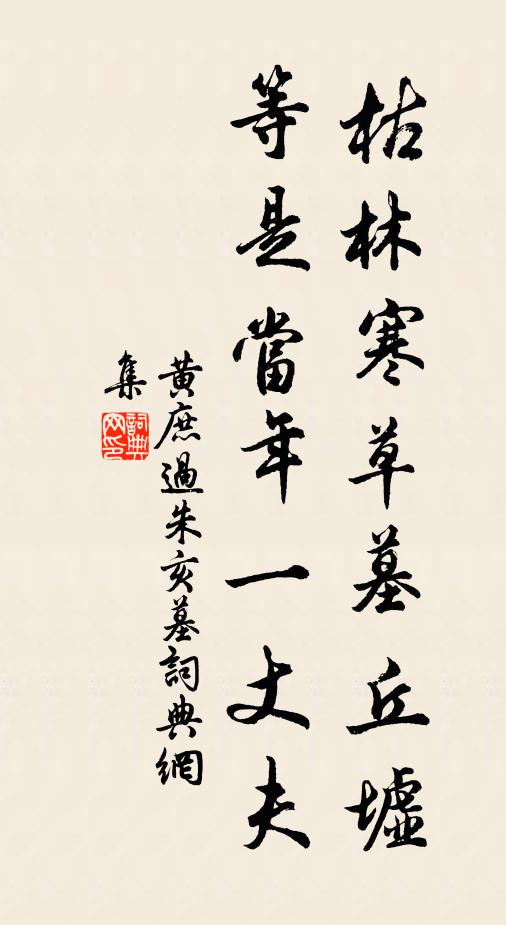 枯林寒草墓丘墟
等是當年一丈夫
黃庶過朱亥墓詞典網
集
詞典
网印